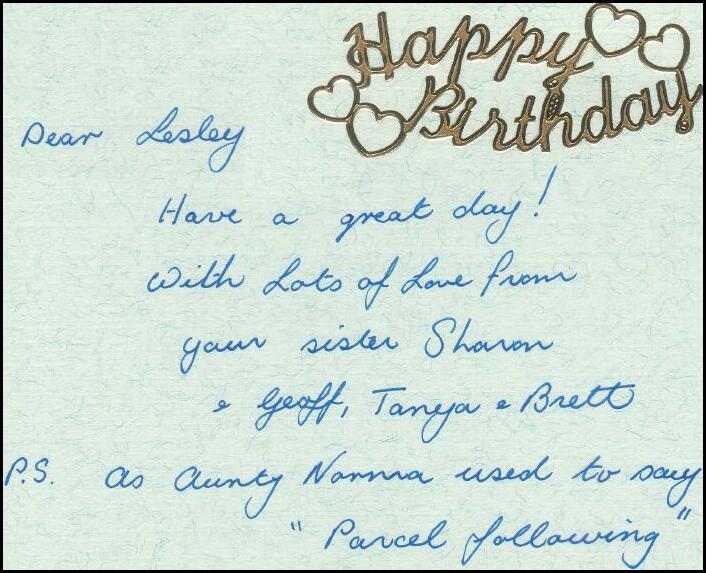 Happy
Birthday
Dear Lesley
Have a great day!
With Lots of Love from
your sister Sharon
& Geoff, Tanya & Brett
P.S. As Aunty Norma used to say
"Parcel following"